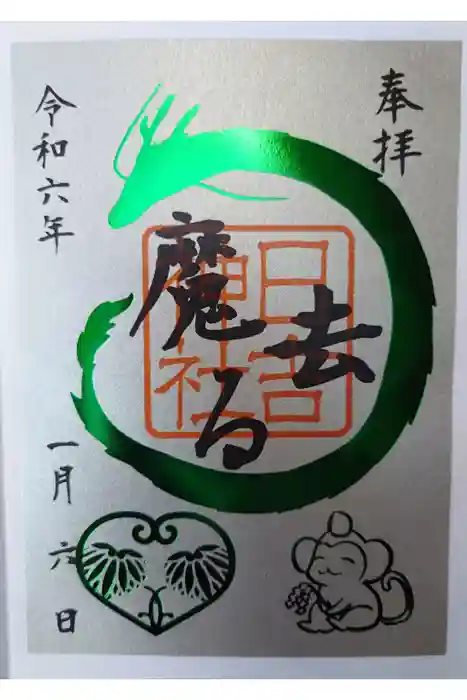 奉拝
魔去る
日吉
神社
令和六年 一月六日